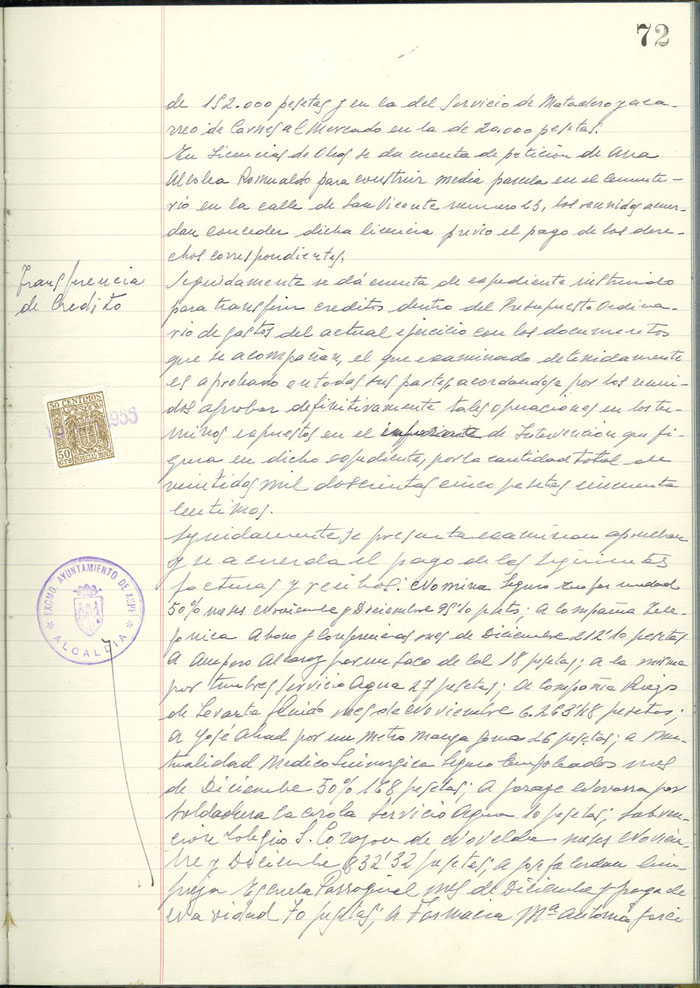 72
de 152.000 pesetas y en la del Servicio de Matadero y aca-
rreo de Carnes al Mercado en la de 20.000 pesetas.
En Licencias de Obras se da cuenta de peticion de Ana
Alcolea Romualdo para construir media parcela en el Cemente-
rio en la calle de San Vicente numero 23, los reunidos acuer-
dan conceder dicha licencia previo el pago de los dere-
chos correspondientes.
Transferencia
de Credito
Seguidamente se dá cuenta de expediente instruido
para transferir creditos dentro del Presupuesto Ordina-
rio de gastos del actual ejercicio con los documentos
que se acompañan, el que examinado detenidamente
es aprobado en todas sus partes acordandose por los reuni-
dos aprobar definitivamente tales operaciones en los ter-
minos expuestos en el de Intervencion que fi-
gura en dicho expediente, por la cantidad total de
veintidos mil doscientas cinco pesetas cincuenta
centimos.
50 CENTIMOS
1956
50
EXCMO. AYUNTAMIENTO DE ASPE
ALCALDIA
Seguidamente se presenta examinan aprueban
y se acuerda el pago de los siguientes
facturas y recibos. Nomina Seguro Enfermedad
50% meses Noviembre y Diciembre 95'10 ptas; A Compañia Tele-
fonica Abono y Conferencias mes de Diciembre 212'10 pesetas
A Amparo Alcaraz por un Saco de cal 18 pesetas; a la misma
por Servicio Agua 27 pesetas; A Compañia Riegos
de Levante fluido mes de Noviembre 6.263'48 pesetas;
A José Abad por un Metro Manga goma 26 pesetas; a Mu-
tualidad Medico Quirurgica Seguro Empleados mes
de Diciembre 50% 168 pesetas; A garage Navarro por
soldadura Servicio Agua 10 pesetas; Subven-
cion Colegio S. Corazon de Novelda meses Noviem-
bre y Diciembre 832'32 pesetas; a Josefa Cerdan lim-
pieza Escuela Parroquial mes de Diciembre y paga de
Navidad 70 pesetas; A Farmacia Mª Antonia Garci